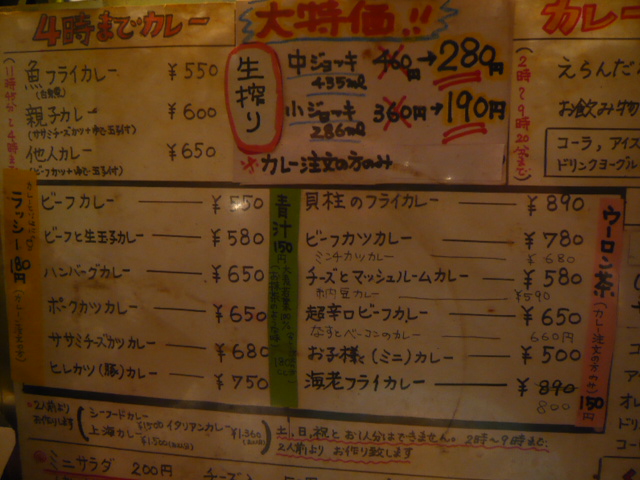 4時までカレー
(11時半から4時まで)
魚フライカレー ¥550
(白身魚)
親子カレー ¥600
(ササミチーズカツ+ゆで玉子付)
他人カレー ¥650
(ビーフカツ+ゆで玉子付)
大特価!!
生搾り
中ジョッキ 460円→280円
435ml
小ジョッキ 360円→190円
286ml
※カレー注文の方のみ
カレー
(2時~9時20分まで)
えらんだ
お飲み物
コーラ,アイス
ドリンクヨーグル
ラッシー180円
ビーフカレー ¥550
ビーフと生玉子カレー ¥580
ハンバーグカレー ¥650
ポークカツカレー ¥650
ササミチーズカツカレー ¥680
ヒレカツ(豚)カレー ¥750
青汁150円
貝柱のフライカレー ¥890
ビーフカツカレー ¥780
ミンチカツカレー ¥680
チーズとマッシュルームカレー ¥580
納豆カレー ¥590
超辛口ビーフカレー ¥650
なすとベーコンのカレー 660円
お子様(ミニ)カレー ¥500
海老フライカレー ¥890
800
ウーロン茶(カレー注文の方のみ)150円
※2人前よりお作りします
シーフードカレー ¥1500
イタリアンカレー ¥1,360
上海カレー ¥1,500
土,日,祝とお1人分はできません。2時~9時まで
2人前よりお作り致します
ミニサラダ 200円